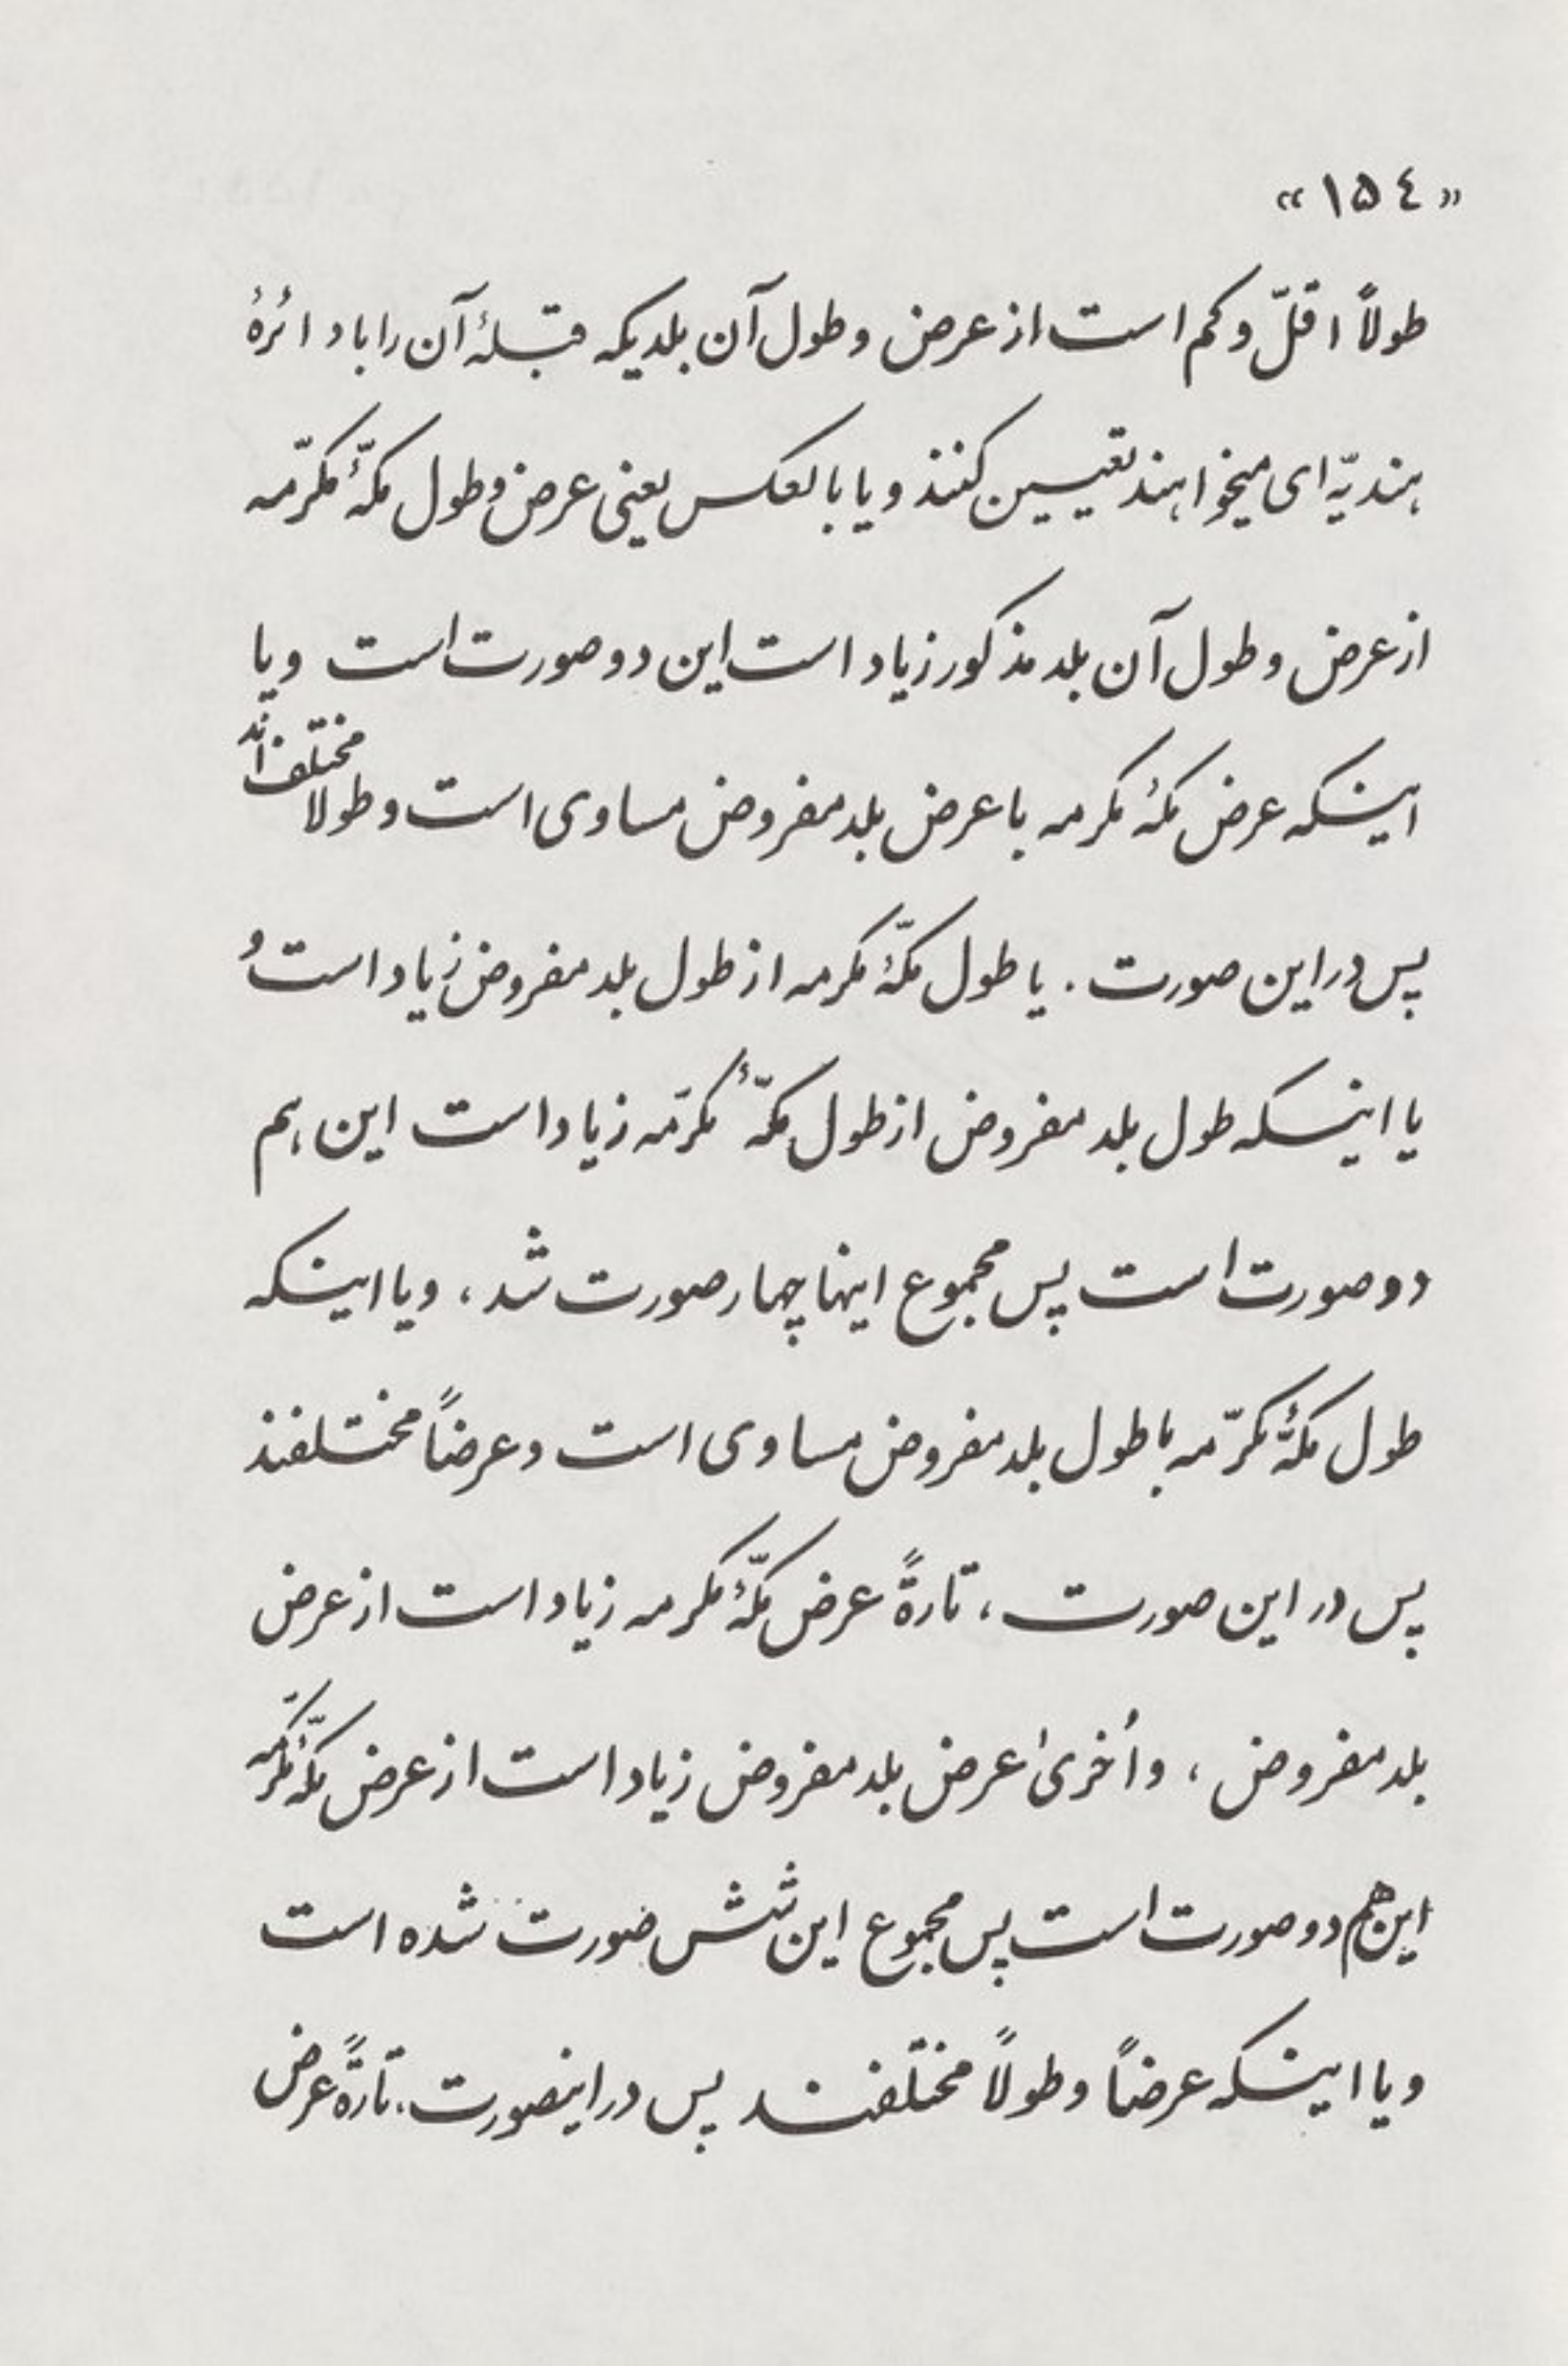 «۱۵٤»
طولاً اقلّ و کم است از عرض و طول آن بلدیکه قبلهٔ آن را با دائرهٔ
هندیّه‌ای میخواهند تعیین کنند و یا بالعکس یعنی عرض و طول مکّهٔ مکرّمه
از عرض و طول آن بلد مذکور زیاد است این دو صورت است و یا
اینکه عرض مکهٔ مکرمه با عرض بلد مفروض مساوی است و طولا مختلف‌اند
پس در این صورت . یا طول مکّهٔ مکرمه از طول بلد مفروض زیاد است وُ
یا اینکه طول بلد مفروض از طول مکّهٔ مکرّمه زیاد است این هم
دو صورت است پس مجموع اینها چهار صورت شد ، و یا اینکه
طول مکّهٔ مکرّمه با طول بلد مفروض مساوی است و عرضاً مختلفند
پس در این صورت ، تارةً عرض مکّهٔ مکرمه زیاد است از عرض
بلد مفروض ، و اُخریٰ عرض بلد مفروض زیاد است از عرض مکّهٔ مکرّمه
این هم دو صورت است پس مجموع این شش صورت شده است
و یا اینکه عرضاً و طولاً مختلفند پس در اینصورت . تارةً عرض